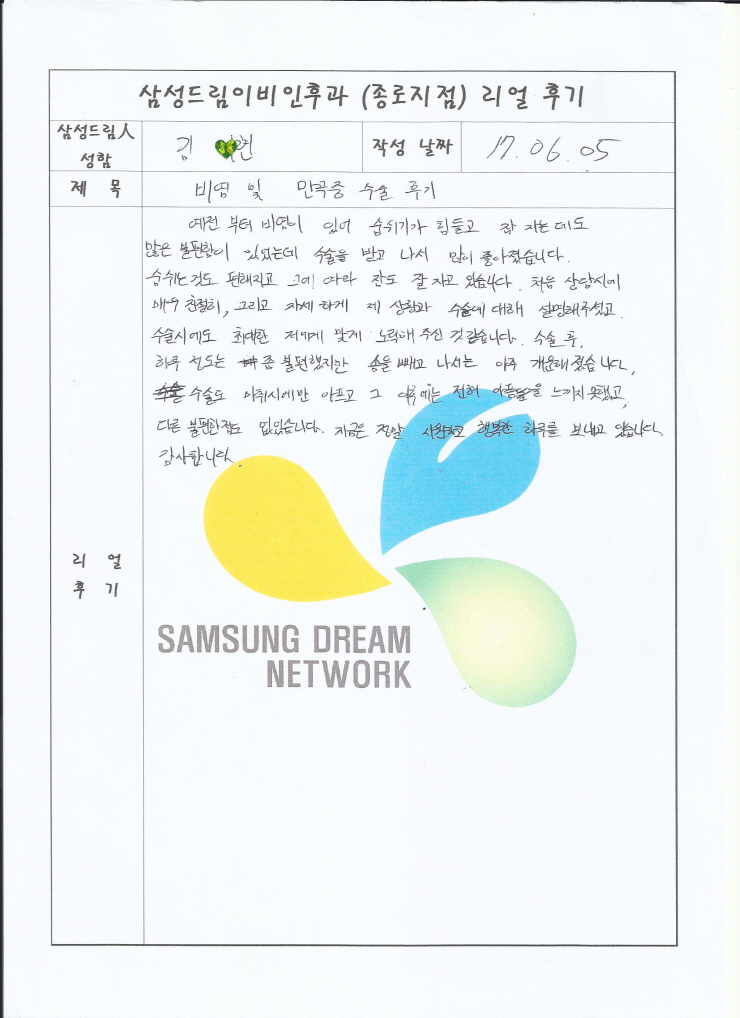 삼성드림이비인후과 (종로지점) 리얼 후기
삼성드림人
성함
김 현
작성 날짜
17. 06. 05
제 목
비염 및 만곡증 수술 후기
예전 부터 비염이 있어 숨쉬기가 힘들고 잠 자는데도
많은 불편함이 있었는데 수술을 받고 나서 많이 좋아졌습니다.
숨쉬는것도 편해지고 그에 따라 잠도 잘 자고 있습니다. 처음 상담시에
매우 친절히, 그리고 자세 하게 제 상황과 수술에 대해 설명해주셨고
수술시에도 최대한 저에게 맞게 노력해 주신 것 같습니다. 수술 후,
하루 정도는 좀 불편했지만 솜을 빼고 나서는 아주 개운해 졌습니다,
수술도 마취시에만 아프고 그 이후에는 전혀 아픔을 느끼지 못했고,
다른 불편한점도 없었습니다. 지금은 정말 시원하고 행복한 하루를 보내고 있습니다.
감사합니다.
리 얼
후 기
SAMSUNG DREAM
NETWORK